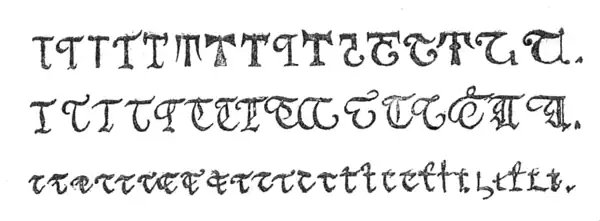 T T T T T T T T T T T T T T T T.
T T T T T T T T T T T T T T T T.
t t t t t t t t t t t t t t t t t t t t t t t t t t.